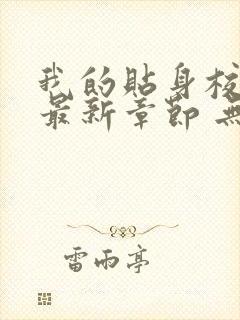 我的貼身校
最新章節 無
雷雨亭